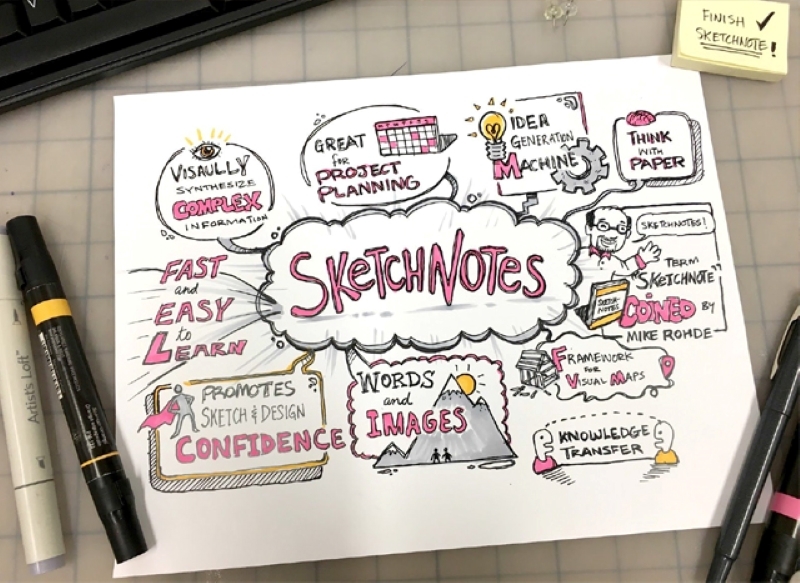 FINISH ✓
SKETCHNOTE!
VISAULLY
SYNTHESIZE
COMPLEX
INFORMATION
GREAT
for
PROJECT
PLANNING
IDEA
GENERATION
MACHINE
THINK
WITH
PAPER
SKETCHNOTES
SKETCHNOTES!
TERM
"SKETCHNOTE"
COINED BY
MIKE ROHDE
SKETCH-
NOTES
FAST
and
EASY
to
LEARN
PROMOTES
SKETCH & DESIGN
CONFIDENCE
WORDS
and
IMAGES
FRAMEWORK
FOR
VISUAL MAPS
KNOWLEDGE
TRANSFER
Artist's Loft